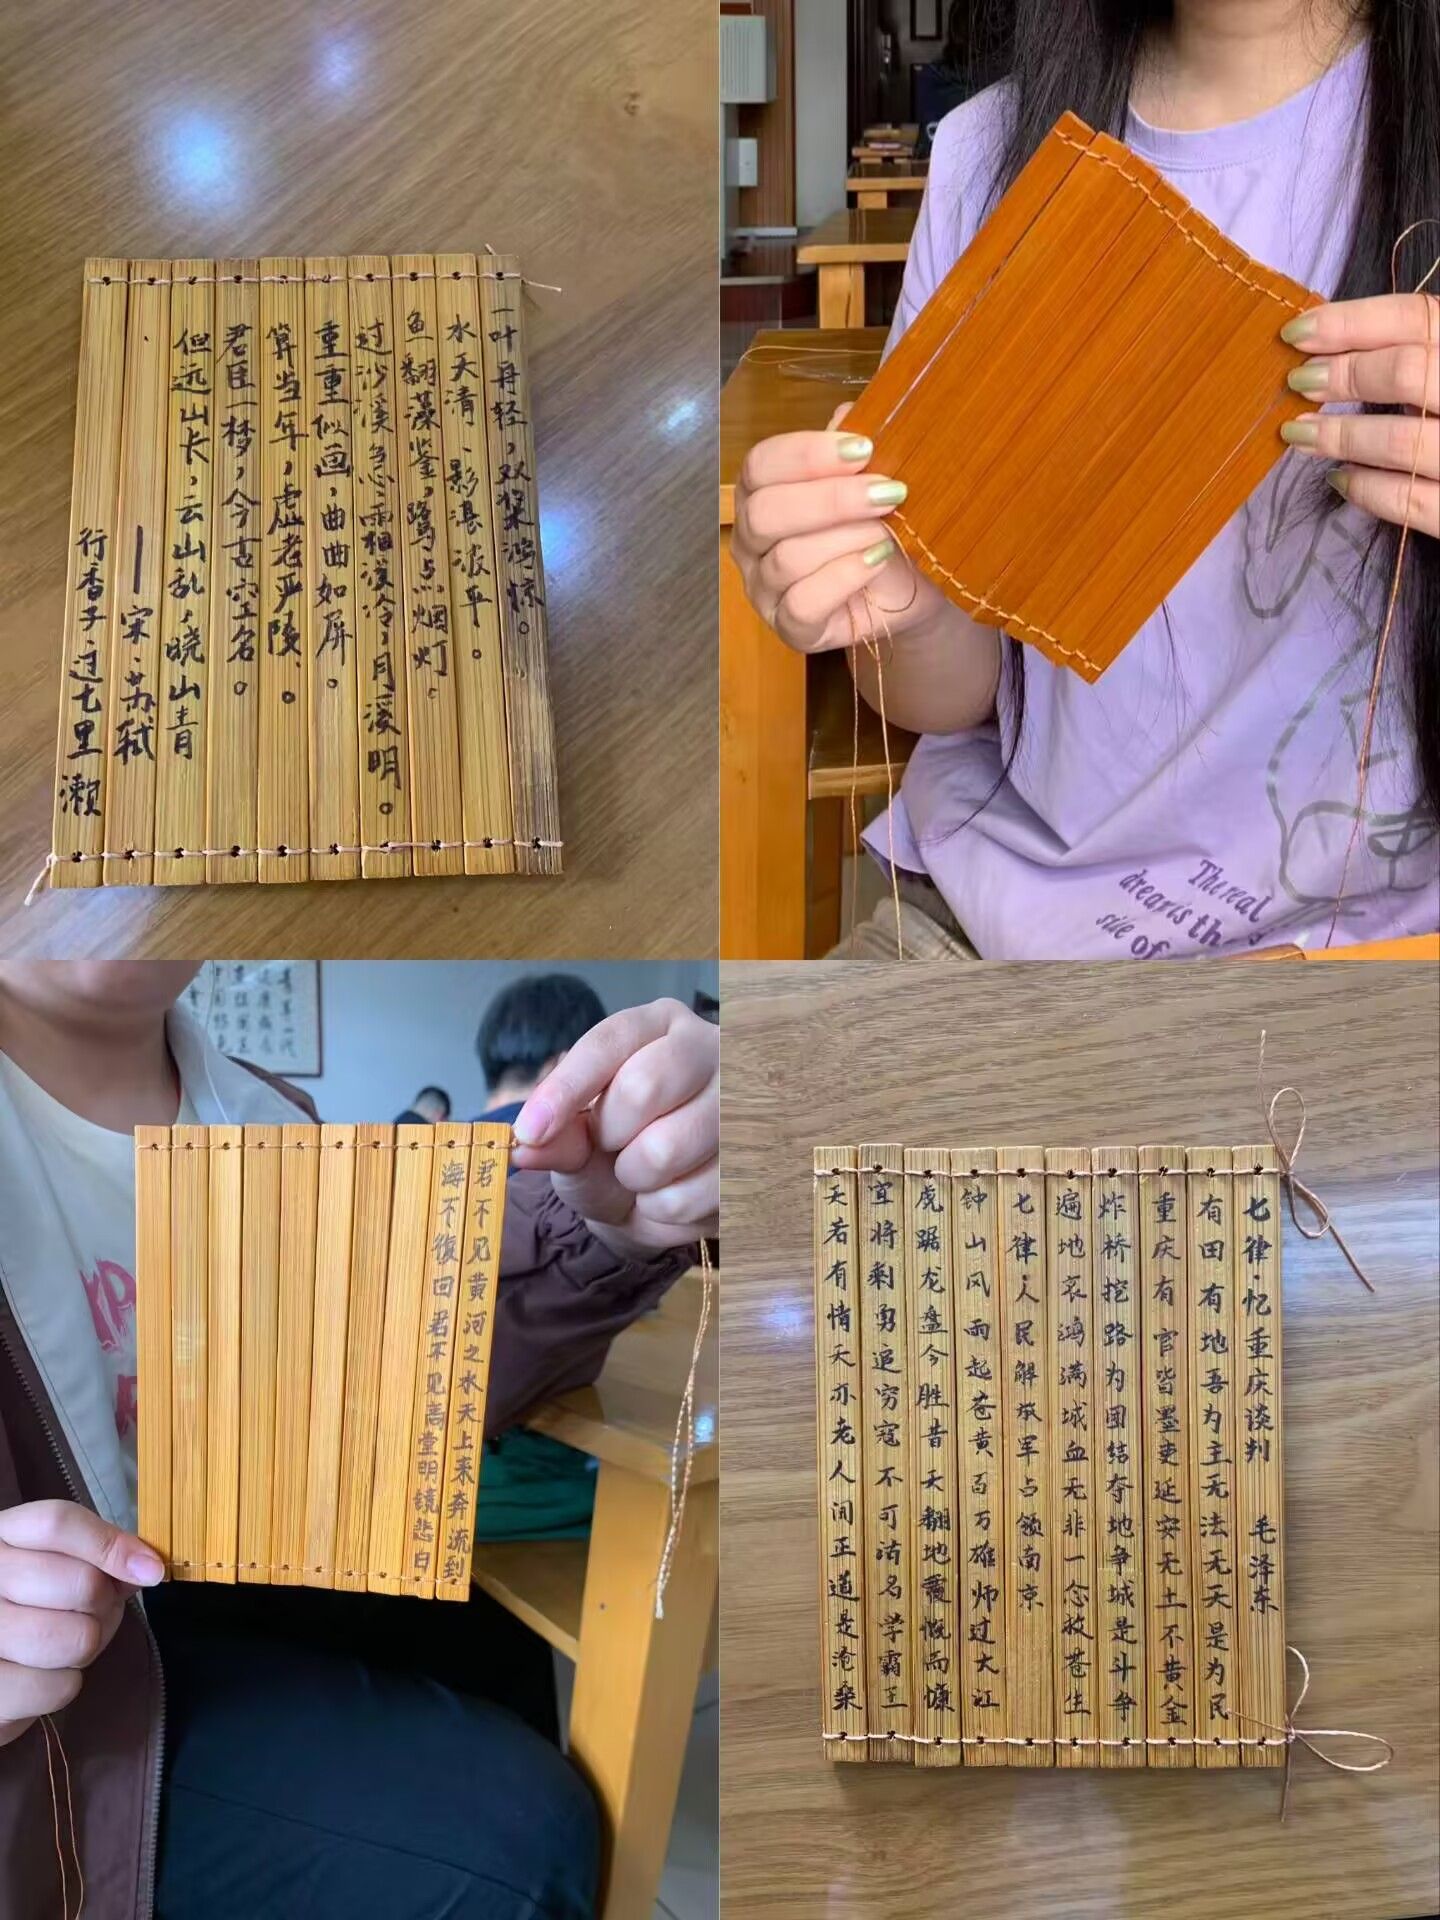 一叶舟轻，双桨鸿惊。
水天清、影湛波平。
鱼翻藻鉴，鹭点烟灯。
过沙溪急、霜溪冷，月溪明。
重重似画，曲曲如屏。
算当年，虚老严陵。
君臣一梦，今古空名。
但远山长，云山乱，晓山青
——宋·苏轼
行香子·过七里濑
The real
dream is the
side of
君不见黄河之水天上来奔流到
海不復回君不见高堂明镜悲白
七律·忆重庆谈判 毛泽东
有田有地吾为主无法无天是为民
重庆有官皆墨吏延安无土不黄金
炸桥挖路为团结夺地争城是斗争
遍地哀鸿满城血无非一念救苍生
七律·人民解放军占领南京
钟山风雨起苍黄百万雄师过大江
虎踞龙盘今胜昔天翻地覆慨而慷
宜将剩勇追穷寇不可沽名学霸王
天若有情天亦老人间正道是沧桑